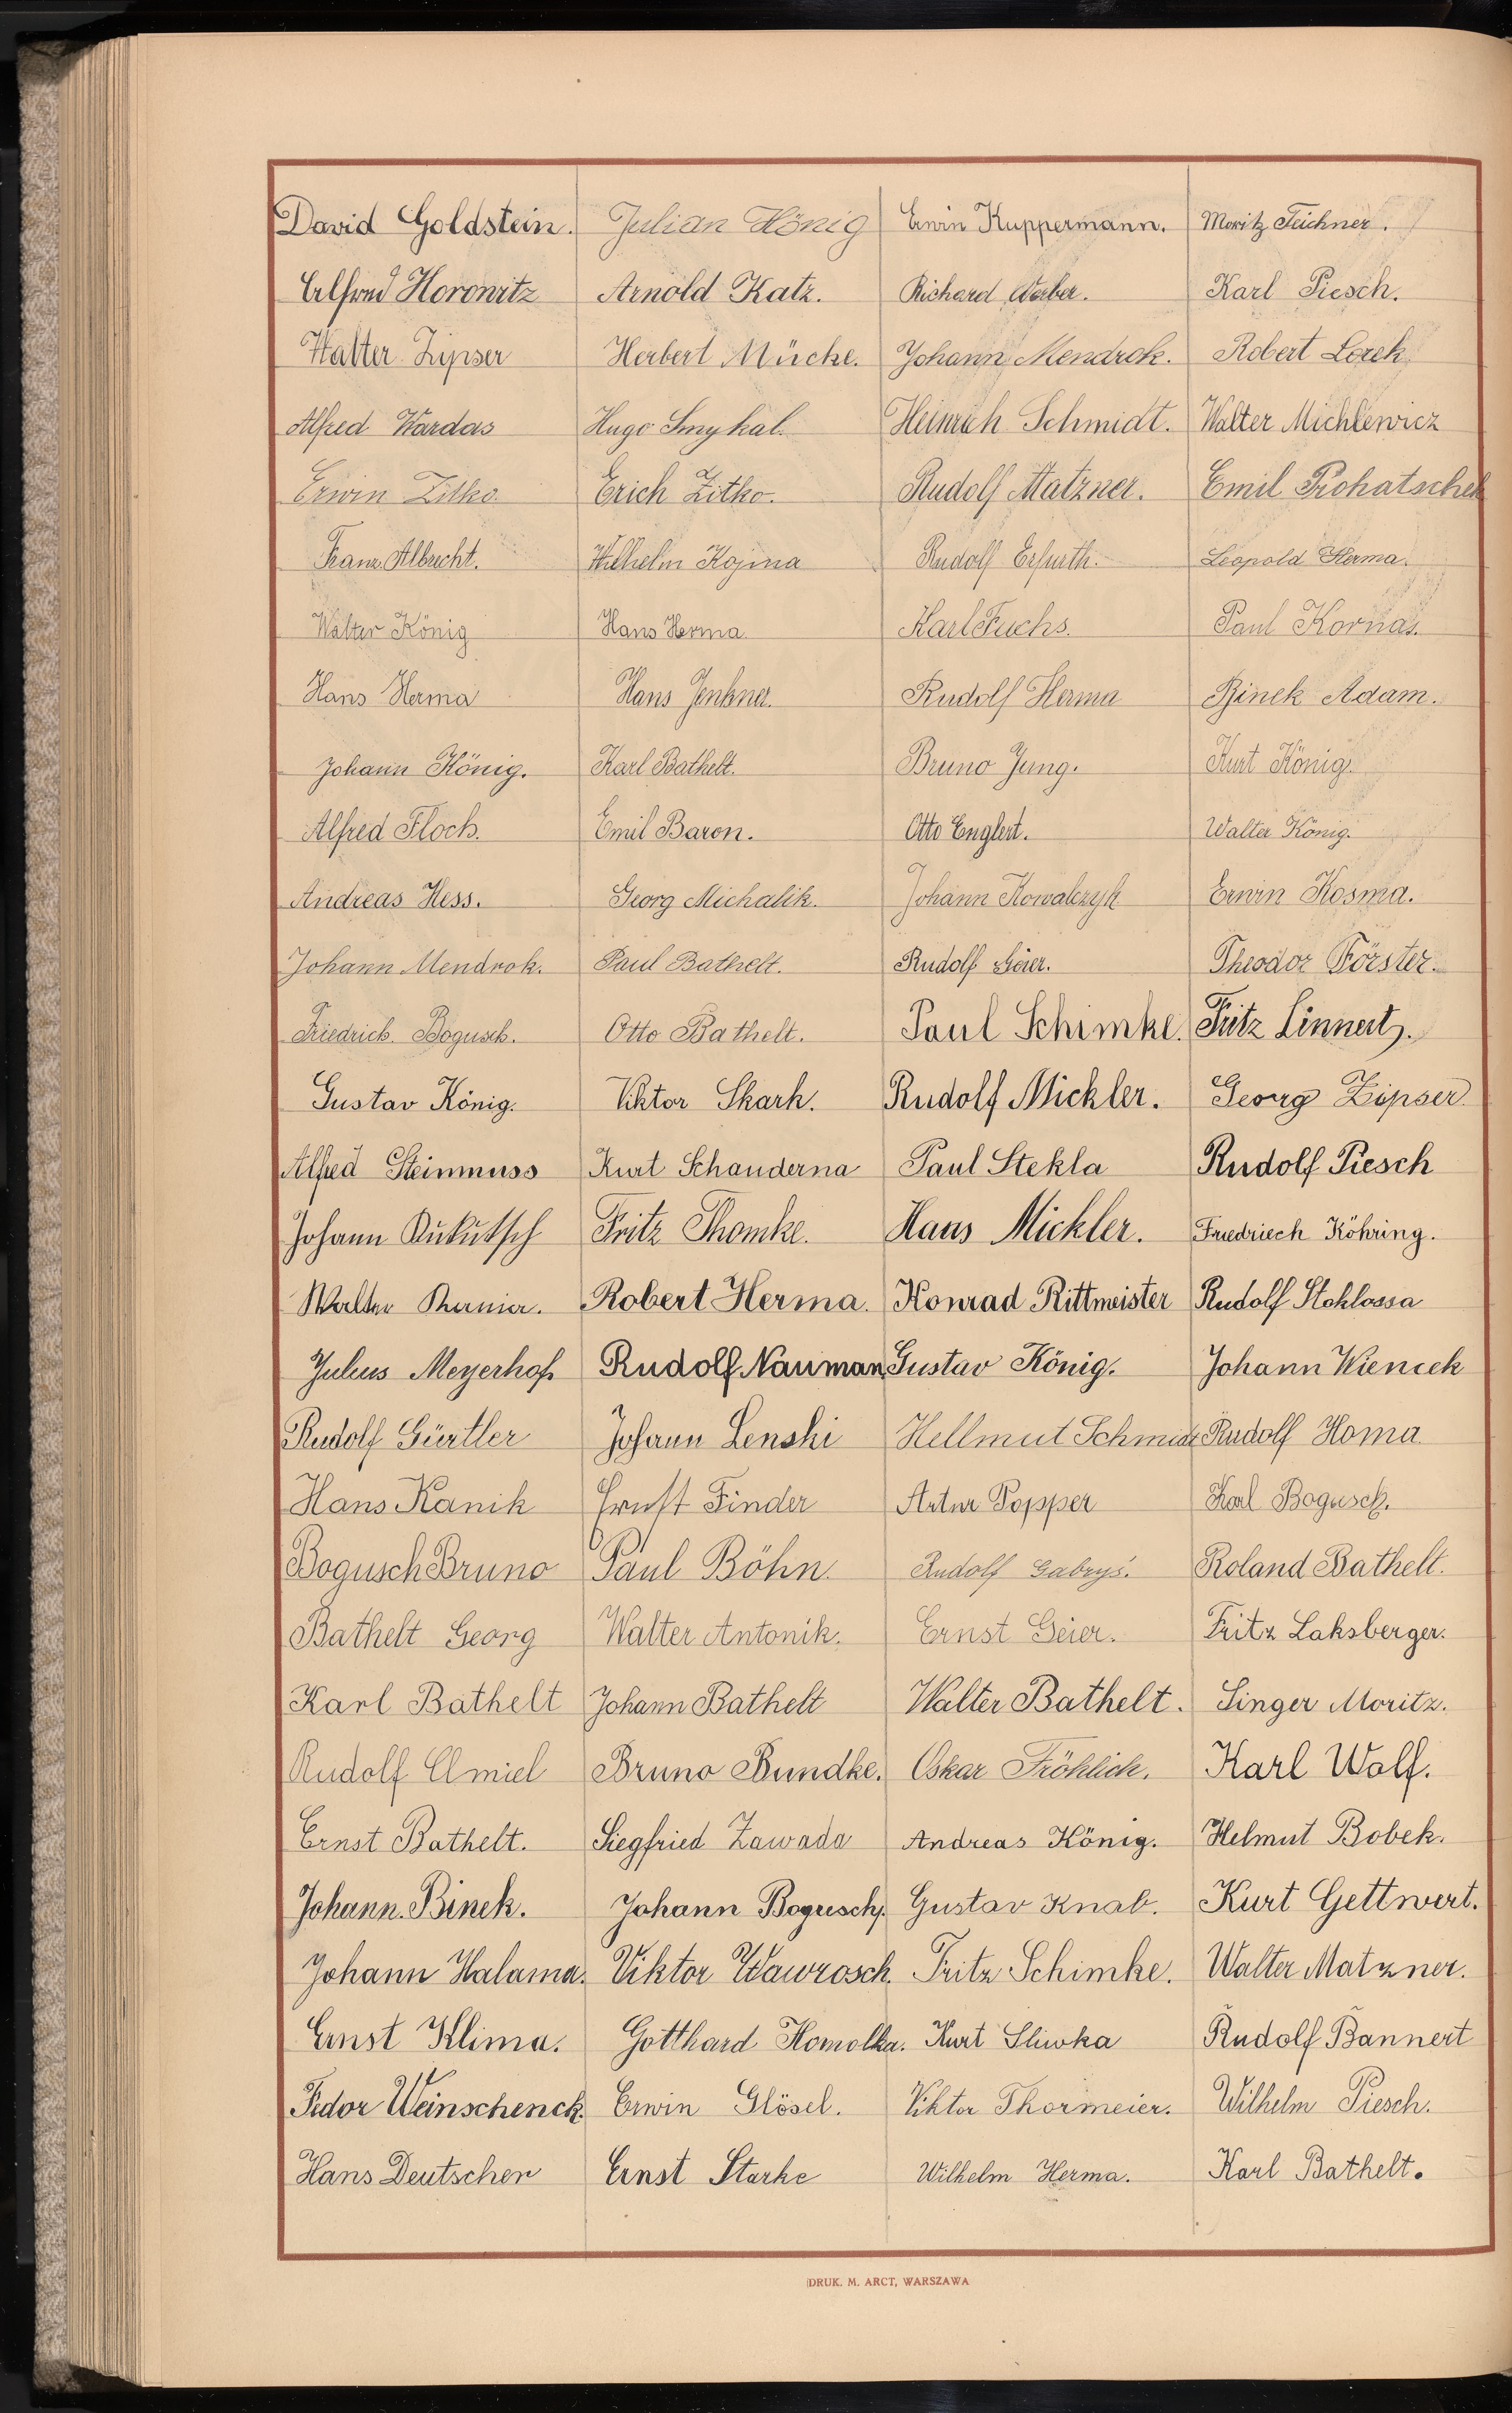 David Goldstein. Julian König Erwin Kuppermann. Moritz Teichner.
Alfred Horowitz Arnold Katz. Richard Karl Piesch.
Walter Zipser Herbert Mücke. Johann Mendrok. Robert Lorek
Alfred Wardas Hugo Smykal. Heinrich Schmidt. Walter Michlewicz
Erwin Zitko. Erich Zitko. Rudolf Matzner. Emil Prohatschek
Franz Albrecht. Wilhelm Kojma Rudolf Erfurth. Leopold Herma.
Walter König Hans Herma Karl Fuchs. Paul Kornas.
Hans Herma Hans Jenkner. Rudolf Herma Binek Adam.
Johann König. Karl Bathelt. Bruno Jung. Kurt König.
Alfred Floch. Emil Baron. Otto Englert. Walter König.
Andreas Hess. Georg Michalik. Johann Kowalczyk Erwin Kosma.
Johann Mendrok. Paul Bathelt. Rudolf Geier. Theodor Förster.
Friedrich Bogusch. Otto Bathelt. Paul Schimke. Fritz Linnert.
Gustav König. Viktor Skark. Rudolf Mickler. Georg Zipser
Alfred Steinmuss Kurt Schanderna Paul Stekla Rudolf Piesch
Johann Kukutsch Fritz Thomke. Hans Mickler. Friedriech Köhring.
Walter Robert Herma. Konrad Rittmeister Rudolf Stoklossa
Julius Meyerhof Rudolf Nauman Gustav König. Johann Wiencek
Rudolf Gürtler Johann Lenski Hellmut Schmidt Rudolf Homa
Hans Kanik Ernst Finder Artur Popper Karl Bogusch.
Bogusch Bruno Paul Böhn. Rudolf Gabryś. Roland Bathelt.
Bathelt Georg Walter Antonik. Ernst Geier. Fritz Laksberger.
Karl Bathelt Johann Bathelt Walter Bathelt. Singer Moritz.
Rudolf Chmiel Bruno Bundke. Oskar Fröhlich. Karl Wolf.
Ernst Bathelt. Siegfried Zawada Andreas König. Helmut Bobek.
Johann Binek. Johann Bogusch. Gustav Knab. Kurt Gettwert.
Johann Halama. Viktor Wawrosch. Fritz Schimke. Walter Matzner.
Ernst Klima. Gotthard Homolka. Kurt Sliwka Rudolf Bannert
Fedor Weinschenck. Erwin Glösel. Viktor Thormeier. Wilhelm Piesch.
Hans Deutscher Ernst Starke Wilhelm Herma. Karl Bathelt.
DRUK. M. ARCT, WARSZAWA